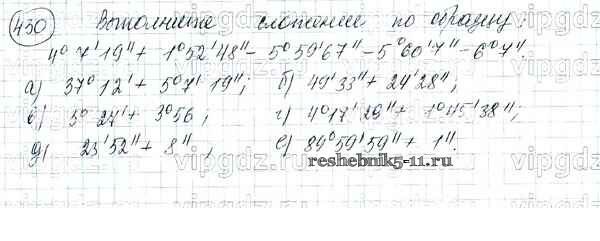 430 Выполните сложение по образцу:
4° 7' 19'' + 1° 52' 48'' - 5° 59' 67'' - 5° 60' 7'' - 6° 7''.
а) 37° 12' + 5° 7' 19''; б) 49' 33'' + 24' 28'';
в) 5° 27' + 3° 56; г) 4° 17' 29'' + 1° 45' 38'';
д) 23' 52'' + 8'', е) 89° 59' 59'' + 1''.
reshebnik5-11.ru
vipgdz.ru